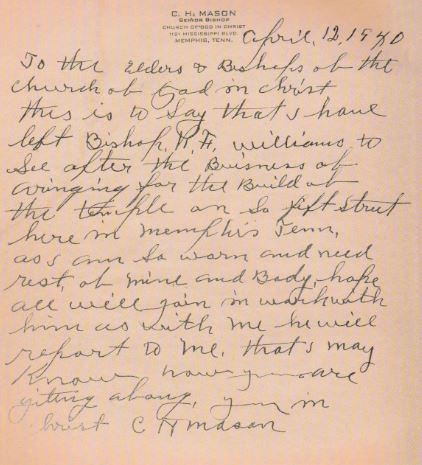 C. H. MASON
SENIOR BISHOP
CHURCH OF GOD IN CHRIST
1121 MISSISSIPPI BLVD.
MEMPHIS, TENN.
April, 12, 1940
To the Elders & Bishops of the
church of God in christ
this is to Say that I have
left Bishop, R. F. Williams, to
See after the Buisness of
aringing for the Build of
the temple on So fift Street
here in Memphis Tenn,
as I am So worn and need
rest, of mind and Body, hope
all will join in work with
him as with me he will
report to me, that I may
Know how you are
giting along, your in
Christ C H Mason